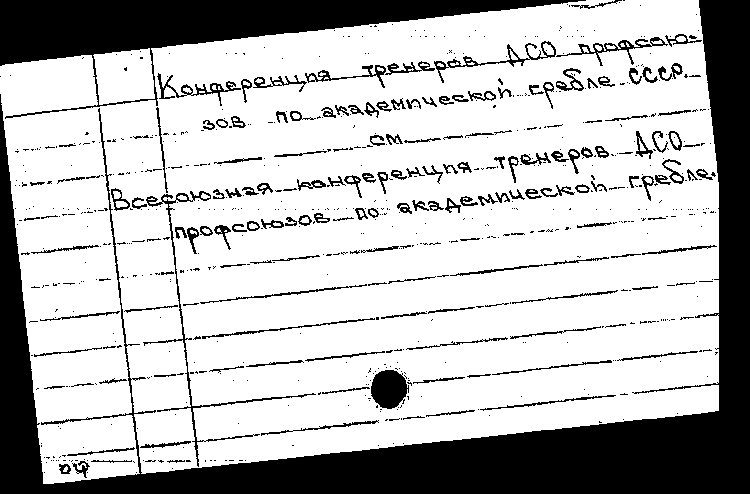 Конференция тренеров ДСО профсою-
зов по академической гребле СССР.
см.
Всесоюзная конференция тренеров ДСО
профсоюзов по академической гребле.
оф